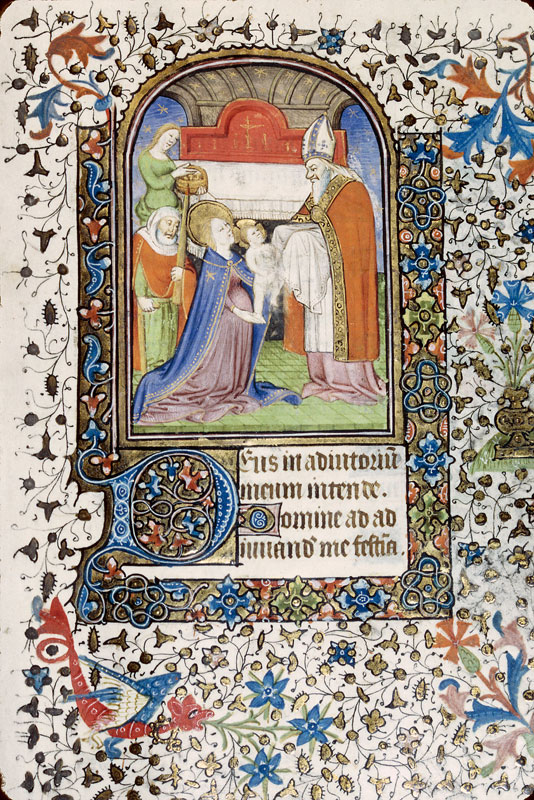 Deus in adiutoriū
meum intende.
Domine ad ad
iuuand' me festīa.